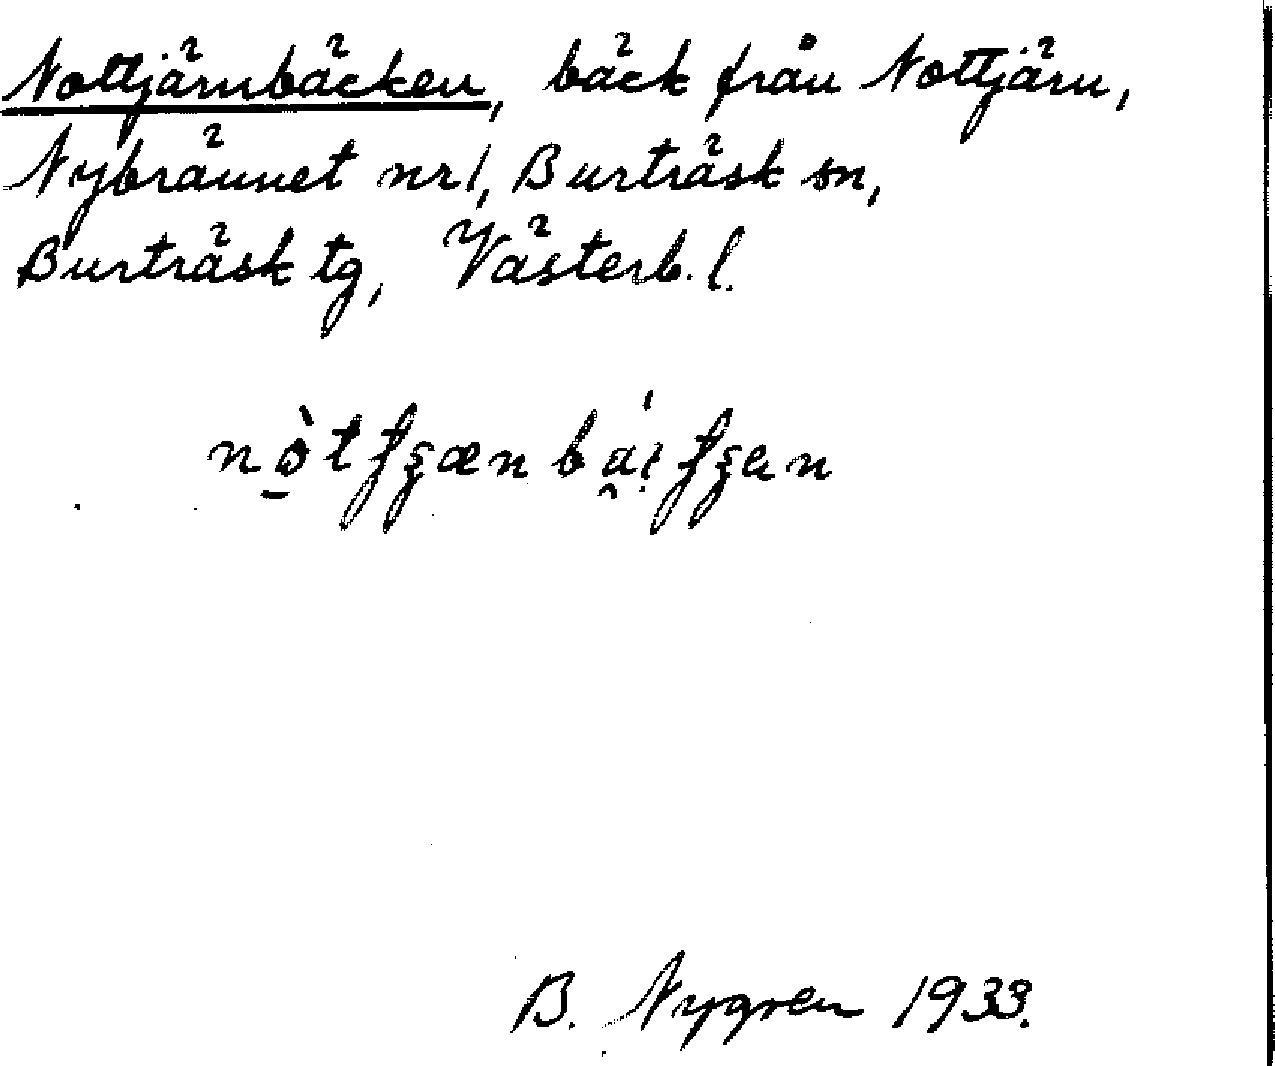 Nottjärnbäcken, bäck från Nottjärn,
Nybrännet nr 1, Burträsk sn,
Burträsk tg, Västerb. l.
B. Nygren 1933.